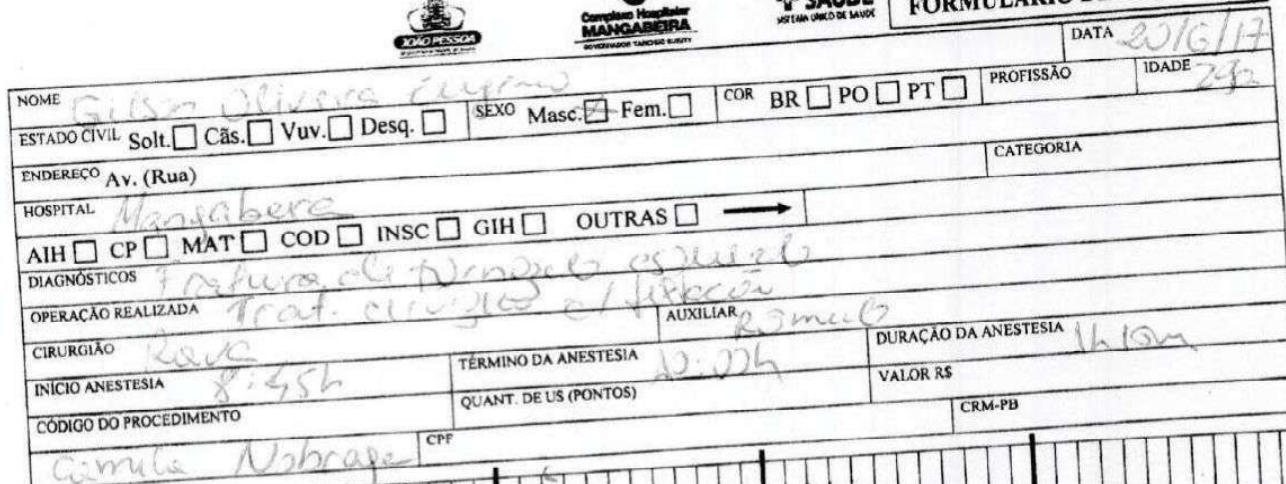 JOÃO PESSOA
Complexo Hospitalar
MANGABEIRA
GOVERNADOR TARCISIO BURITY
SAÚDE
SISTEMA ÚNICO DE SAÚDE
DATA 20/6/17
NOME Gilson Oliveira
SEXO Masc. Fem.
COR BR PO PT
PROFISSÃO
IDADE
ESTADO CIVIL Solt. Cãs. Vuv. Desq.
ENDEREÇO Av. (Rua)
CATEGORIA
HOSPITAL Mangabeira
AIH CP MAT COD INSC GIH OUTRAS
DIAGNÓSTICOS Fratura de tornozelo esquerdo
OPERAÇÃO REALIZADA Trat. cirúrgico c/ fixación
CIRURGIÃO
AUXILIAR Rômulo
INÍCIO ANESTESIA 8:45h
TÉRMINO DA ANESTESIA
DURAÇÃO DA ANESTESIA
CÓDIGO DO PROCEDIMENTO
QUANT. DE US (PONTOS)
VALOR R$
Camila Nobrega
CPF
CRM-PB